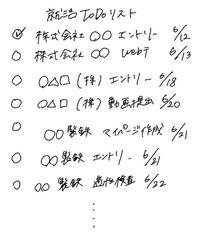 就活ToDoリスト
株式会社 〇〇 エントリー 6/12
株式会社 〇〇 webテ 6/13
〇△□ (株) エントリー 6/18
〇△□ (株) 動画提出 6/20
〇〇 製鉄 マイページ作成 6/21
〇〇 製鉄 エントリー 6/21
〇〇 製鉄 適性検査 6/22
⋮